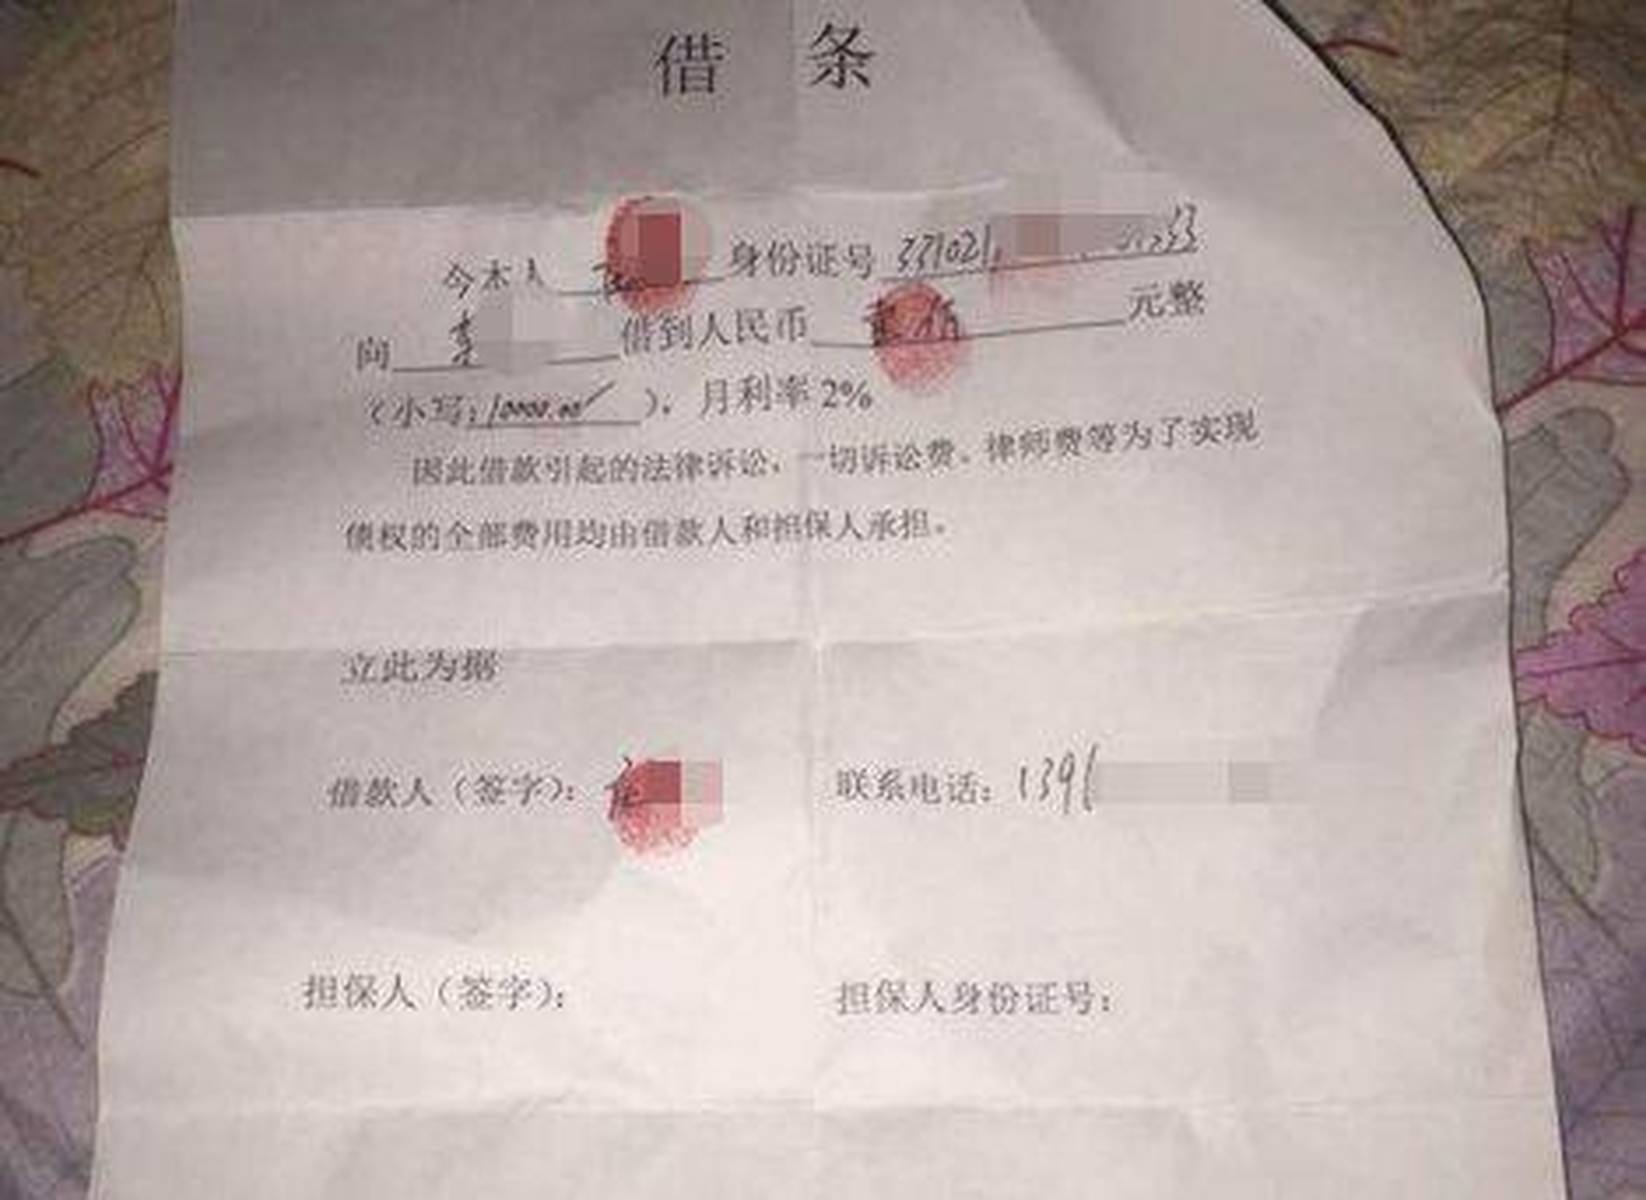 借 条
今本人 身份证号 331021
向 借到人民币 元整
（小写：10000.00 ），月利率 2%
因此借款引起的法律诉讼，一切诉讼费、律师费等为了实现
债权的全部费用均由借款人和担保人承担。
立此为据
借款人（签字）： 联系电话：139
担保人（签字）： 担保人身份证号：